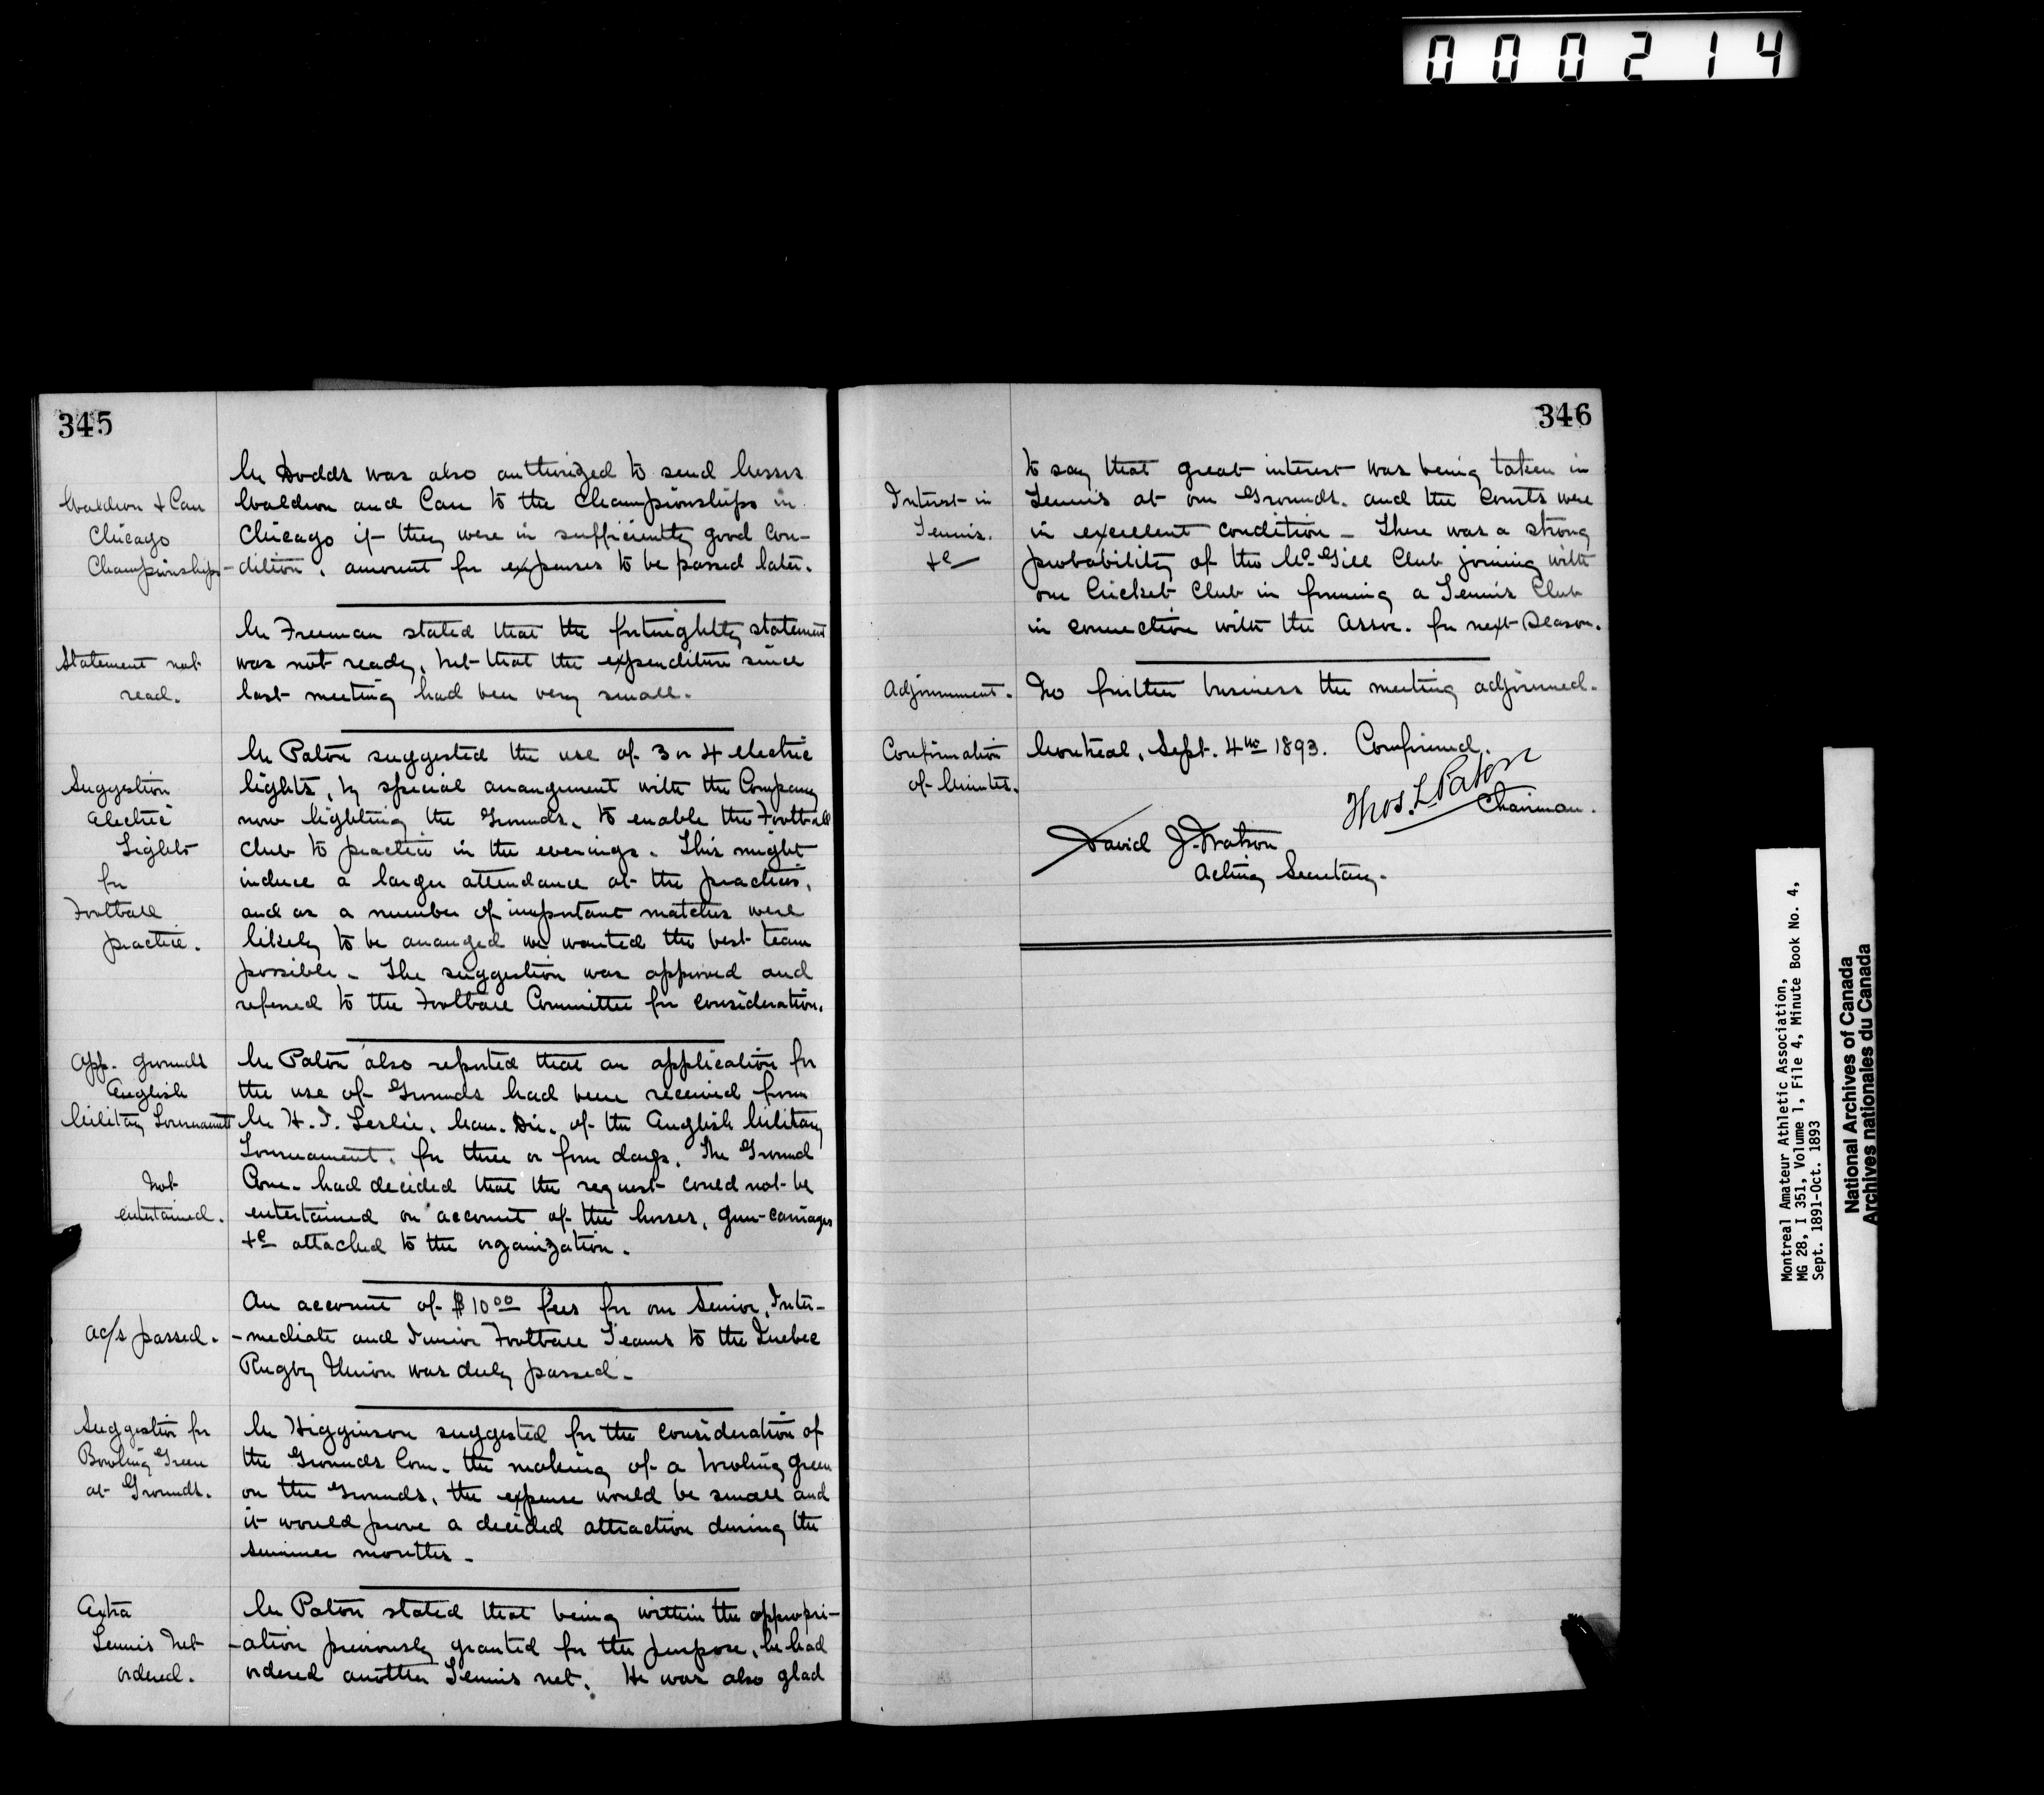 000214
345
Mr Dodds was also authorized to send Messrs
Waldron & Carr
Waldron and Carr to the Championships in
Chicago
Chicago if they were in sufficiently good con-
Championships
-dition, amount for expenses to be passed later.
Mr Freeman stated that the fortnightly statement
Statement not
was not ready, but that the expenditure since
read.
last meeting had been very small.
Mr Paton suggested the use of 3 or 4 electric
Suggestion
lights, by special arrangement with the Company
Electric
now lighting the Grounds, to enable the Football
Lights
Club to practice in the evenings. This might
for
induce a larger attendance at the practices,
Football
and as a number of important matches were
practice.
likely to be arranged we wanted the best team
possible. The suggestion was approved and
referred to the Football Committee for consideration.
App. grounds
Mr Paton also reported that an application for
English
the use of Grounds had been received from
Military Tournament
Mr H. J. Leslie, Man. Dir. of the English Military
Tournament, for three or four days. The Ground
Not
Com. had decided that the request could not be
entertained.
entertained on account of the horses, gun-carriages
&c attached to the organization.
An account of $10 00 fees for our Senior, Inter-
ac/s passed.
-mediate and Junior Football Teams to the Quebec
Rugby Union was duly passed.
Suggestion for
Mr Higginson suggested for the consideration of
Bowling Green
the Grounds Com. the making of a bowling green
at Grounds.
on the Grounds, the expense would be small and
it would prove a decided attraction during the
summer months.
Extra
Mr Paton stated that being within the appropri-
Tennis Net
-ation previously granted for the purpose, he had
ordered.
ordered another Tennis net. He was also glad
346
to say that great interest was being taken in
Interest in
Tennis at our Grounds, and the Courts were
Tennis.
in excellent condition. There was a strong
&c
probability of the McGill Club joining with
our Cricket Club in forming a Tennis Club
in connection with the Assoc. for next season.
Adjournment.
No further business the meeting adjourned.
Confirmation
Montreal, Sept. 4th 1893. Confirmed.
of Minutes.
Thos. L. Paton
Chairman.
David J. Watson
Acting Secretary.
Montreal Amateur Athletic Association,
MG 28, I 351, Volume 1, File 4, Minute Book No. 4,
Sept. 1891-Oct. 1893
National Archives of Canada
Archives nationales du Canada